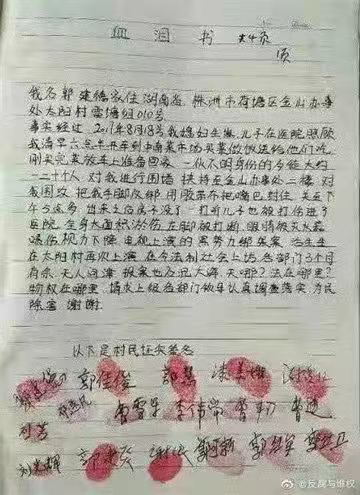 血泪书 共4页
页
我名郭建德家住湖南省 株洲市荷塘区金山办事
处太阳村雷塘组010号
事实经过 2011年8月18号我媳妇生崽,儿子在医院照顾
我清早六点半开车到中南菜市场买菜做饭送给他们吃
刚买完菜放车上准备回家 一伙不明身份的令径大约
一二十个人 对我进行围堵 扶持至金山办事处二楼 对
我围攻 把我手脚反绑 用胶带布把嘴巴封住 关至下
午5点多 出来之后房子没了 一打听儿子也被打伤进了
医院 全身大面积淤伤 左脚被打断 眼睛被灭火器
喷伤视力下降 电视上演的黑势力绑架案 活生生
在太阳村再次上演 在今法制社会上访 各部门3个月
有余 无人问津 报案也石沉大海 天哪? 法在哪里?
物权在哪里 请求上级各部门领导认真调查落实 为民
除害 谢谢
以下是村民证实签名
郭佳俊
曹雪华 李伟常 曹初
@反腐与维权